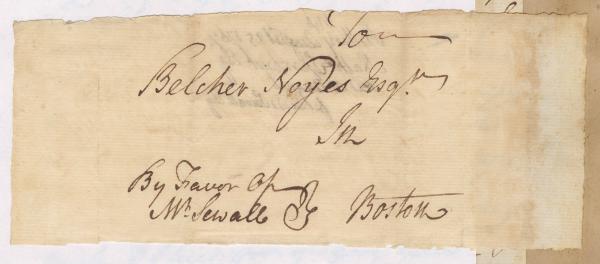 To
Belcher Noyes Esqr.
In
By Favor of
Mr. Sewall Boston